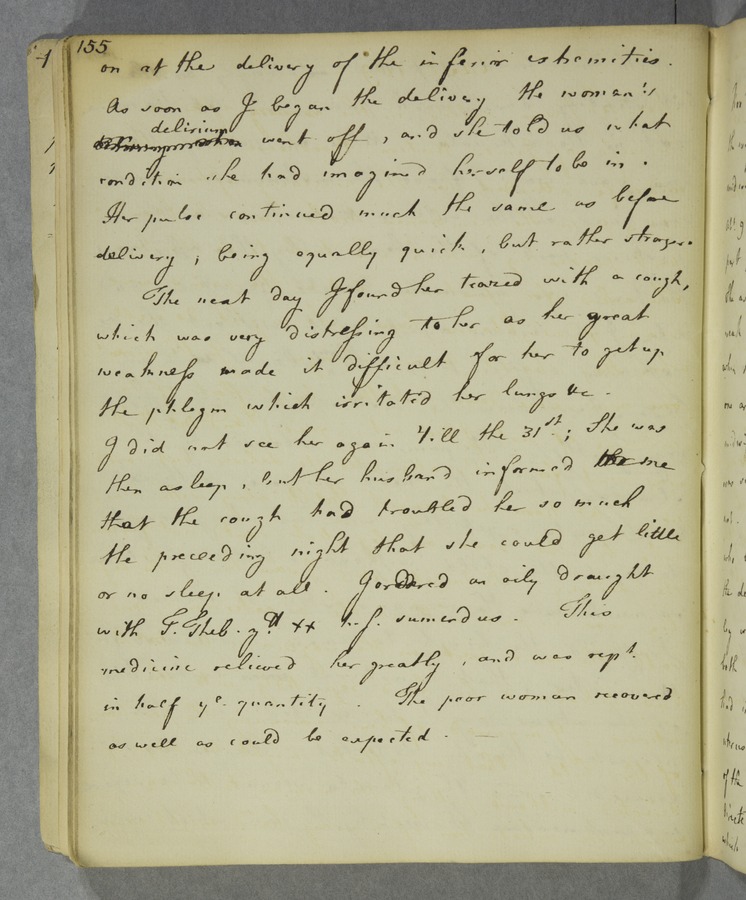 155
on at the delivery of the inferior extremities.
As soon as I began the delivery the woman's
delirium went off, and she told us what
condition she had imagined herself to be in.
Her pulse continued much the same as before
delivery; being equally quick, but rather stronger.
The next day I found her teazed with a cough,
which was very distressing to her as her great
weakness made it difficult for her to get up
the phlegm which irritated her lungs &c.
I did not see her again 'till the 31st; She was
then asleep, but her husband informed me
that the cough had troubled her so much
the preceeding night that she could get little
or no sleep at all. I ordered an oily draught
with T. Theb. gtt xx h.s. sumendus. This
medicine relieved her greatly, and was rept.
in half ye. quantity. The poor woman recovered
as well as could be expected.